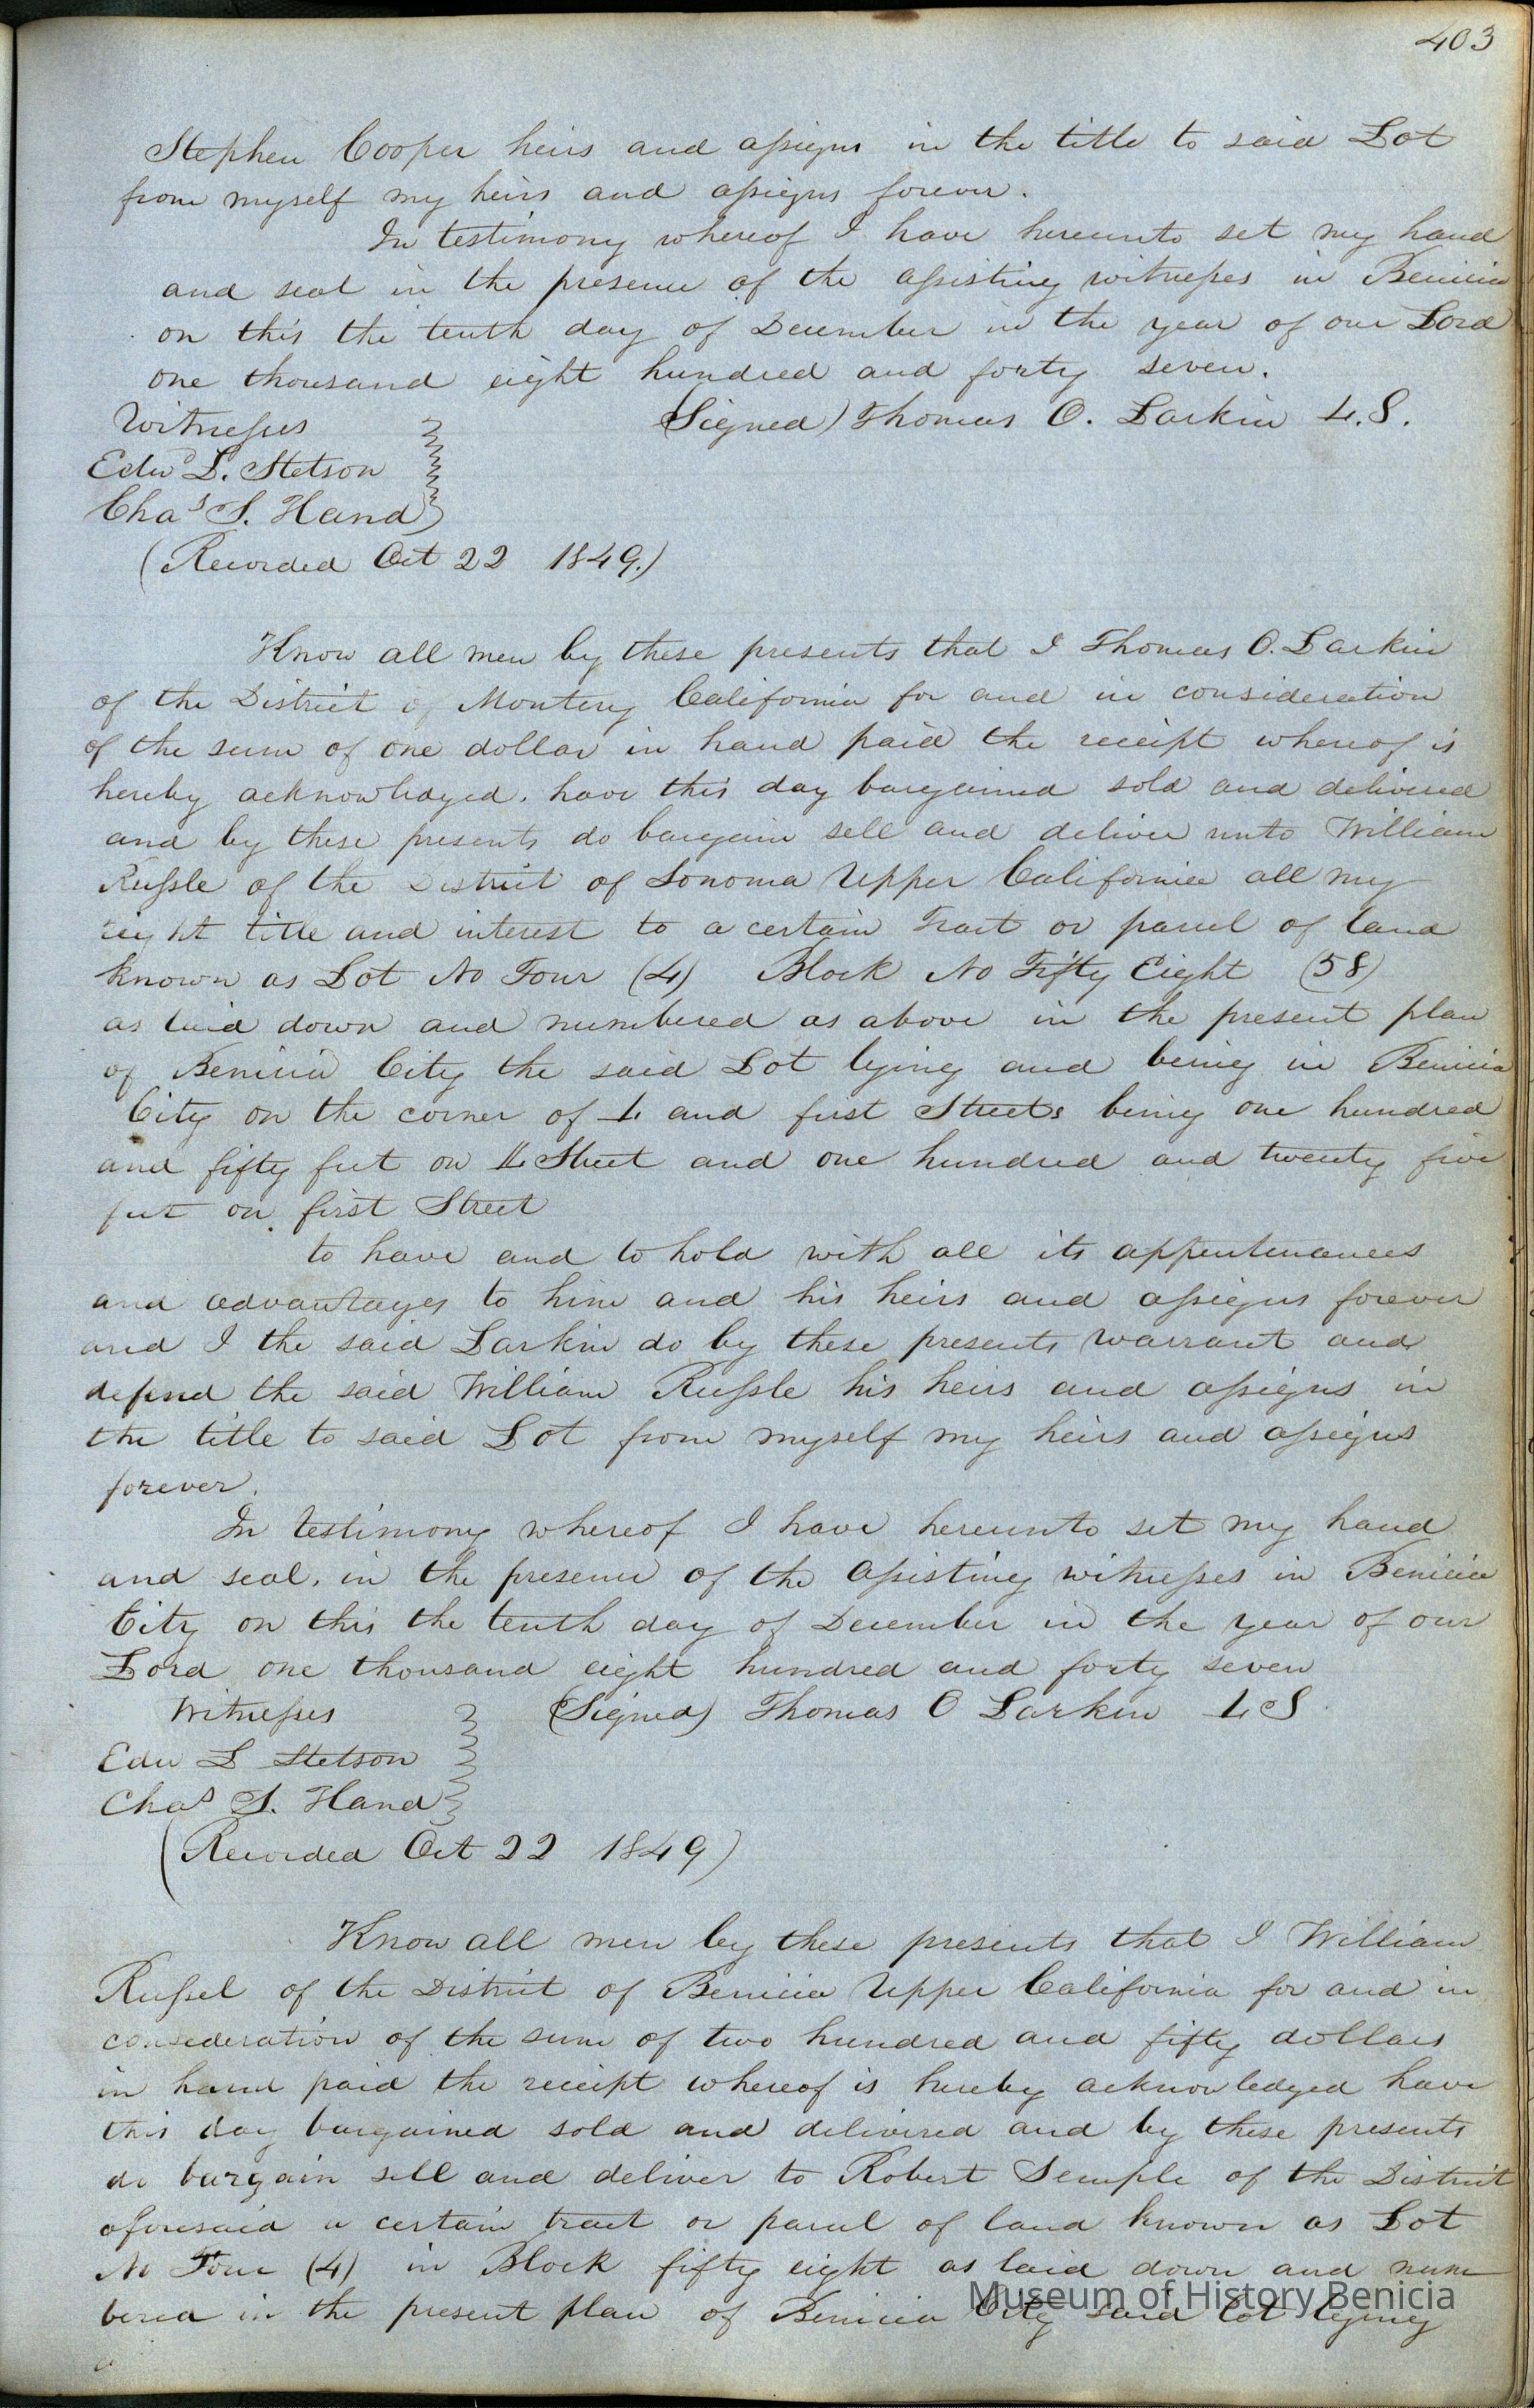 403
Stephen Cooper heirs and assigns in the title to said Lot
from myself my heirs and assigns forever.
In testimony whereof I have hereunto set my hand
and seal in the presence of the assisting witnesses in Benicia
on this the tenth day of December in the year of our Lord
one thousand eight hundred and forty seven.
Witnesses (Signed) Thomas O. Larkin L.S.
Edwd L. Stetson
Chas S. Hand
(Recorded Oct 22 1849.)
Know all men by these presents that I Thomas O. Larkin
of the District of Monterey California for and in consideration
of the sum of one dollar in hand paid the receipt whereof is
hereby acknowledged. have this day bargained sold and delivered
and by these presents do bargain sell and deliver unto William
Russle of the District of Sonoma Upper California all my
right title and interest to a certain Tract or parcel of land
known as Lot No Four (4) Block No Fifty Eight (58)
as laid down and numbered as above in the present plan
of Benicia City the said Lot lying and being in Benicia
City on the corner of L and first Streets being one hundred
and fifty feet on L Street and one hundred and twenty five
feet on first Street
to have and to hold with all its appurtenances
and advantages to him and his heirs and assigns forever
and I the said Larkin do by these presents warrant and
defend the said William Russle his heirs and assigns in
the title to said Lot from myself my heirs and assigns
forever.
In testimony whereof I have hereunto set my hand
and seal. in the presence of the assisting witnesses in Benicia
City on this the tenth day of December in the year of our
Lord one thousand eight hundred and forty seven
Witnesses (Signed) Thomas O Larkin L S
Edw L Stetson
Chas S. Hand
(Recorded Oct 22 1849)
Know all men by these presents that I William
Russel of the District of Benicia Upper California for and in
consideration of the sum of two hundred and fifty dollars
in hand paid the receipt whereof is hereby acknowledged have
this day bargained sold and delivered and by these presents
do bargain sell and deliver to Robert Semple of the District
aforesaid a certain tract or parcel of land known as Lot
No Four (4) in Block fifty eight as laid down and num
bered in the present plan of Benicia City said lot lying
Museum of History Benicia